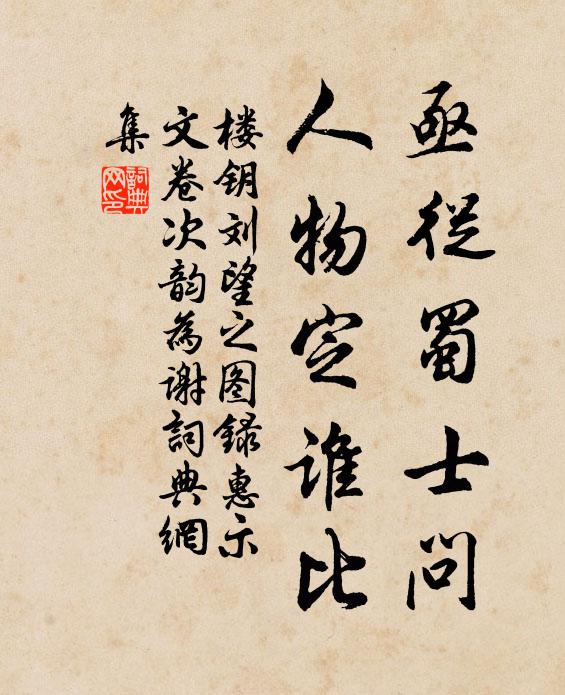 亟從蜀士問
人物定誰比
楼钥刘望之图録惠示
文卷次韵為谢詞典網
集
詞典网印